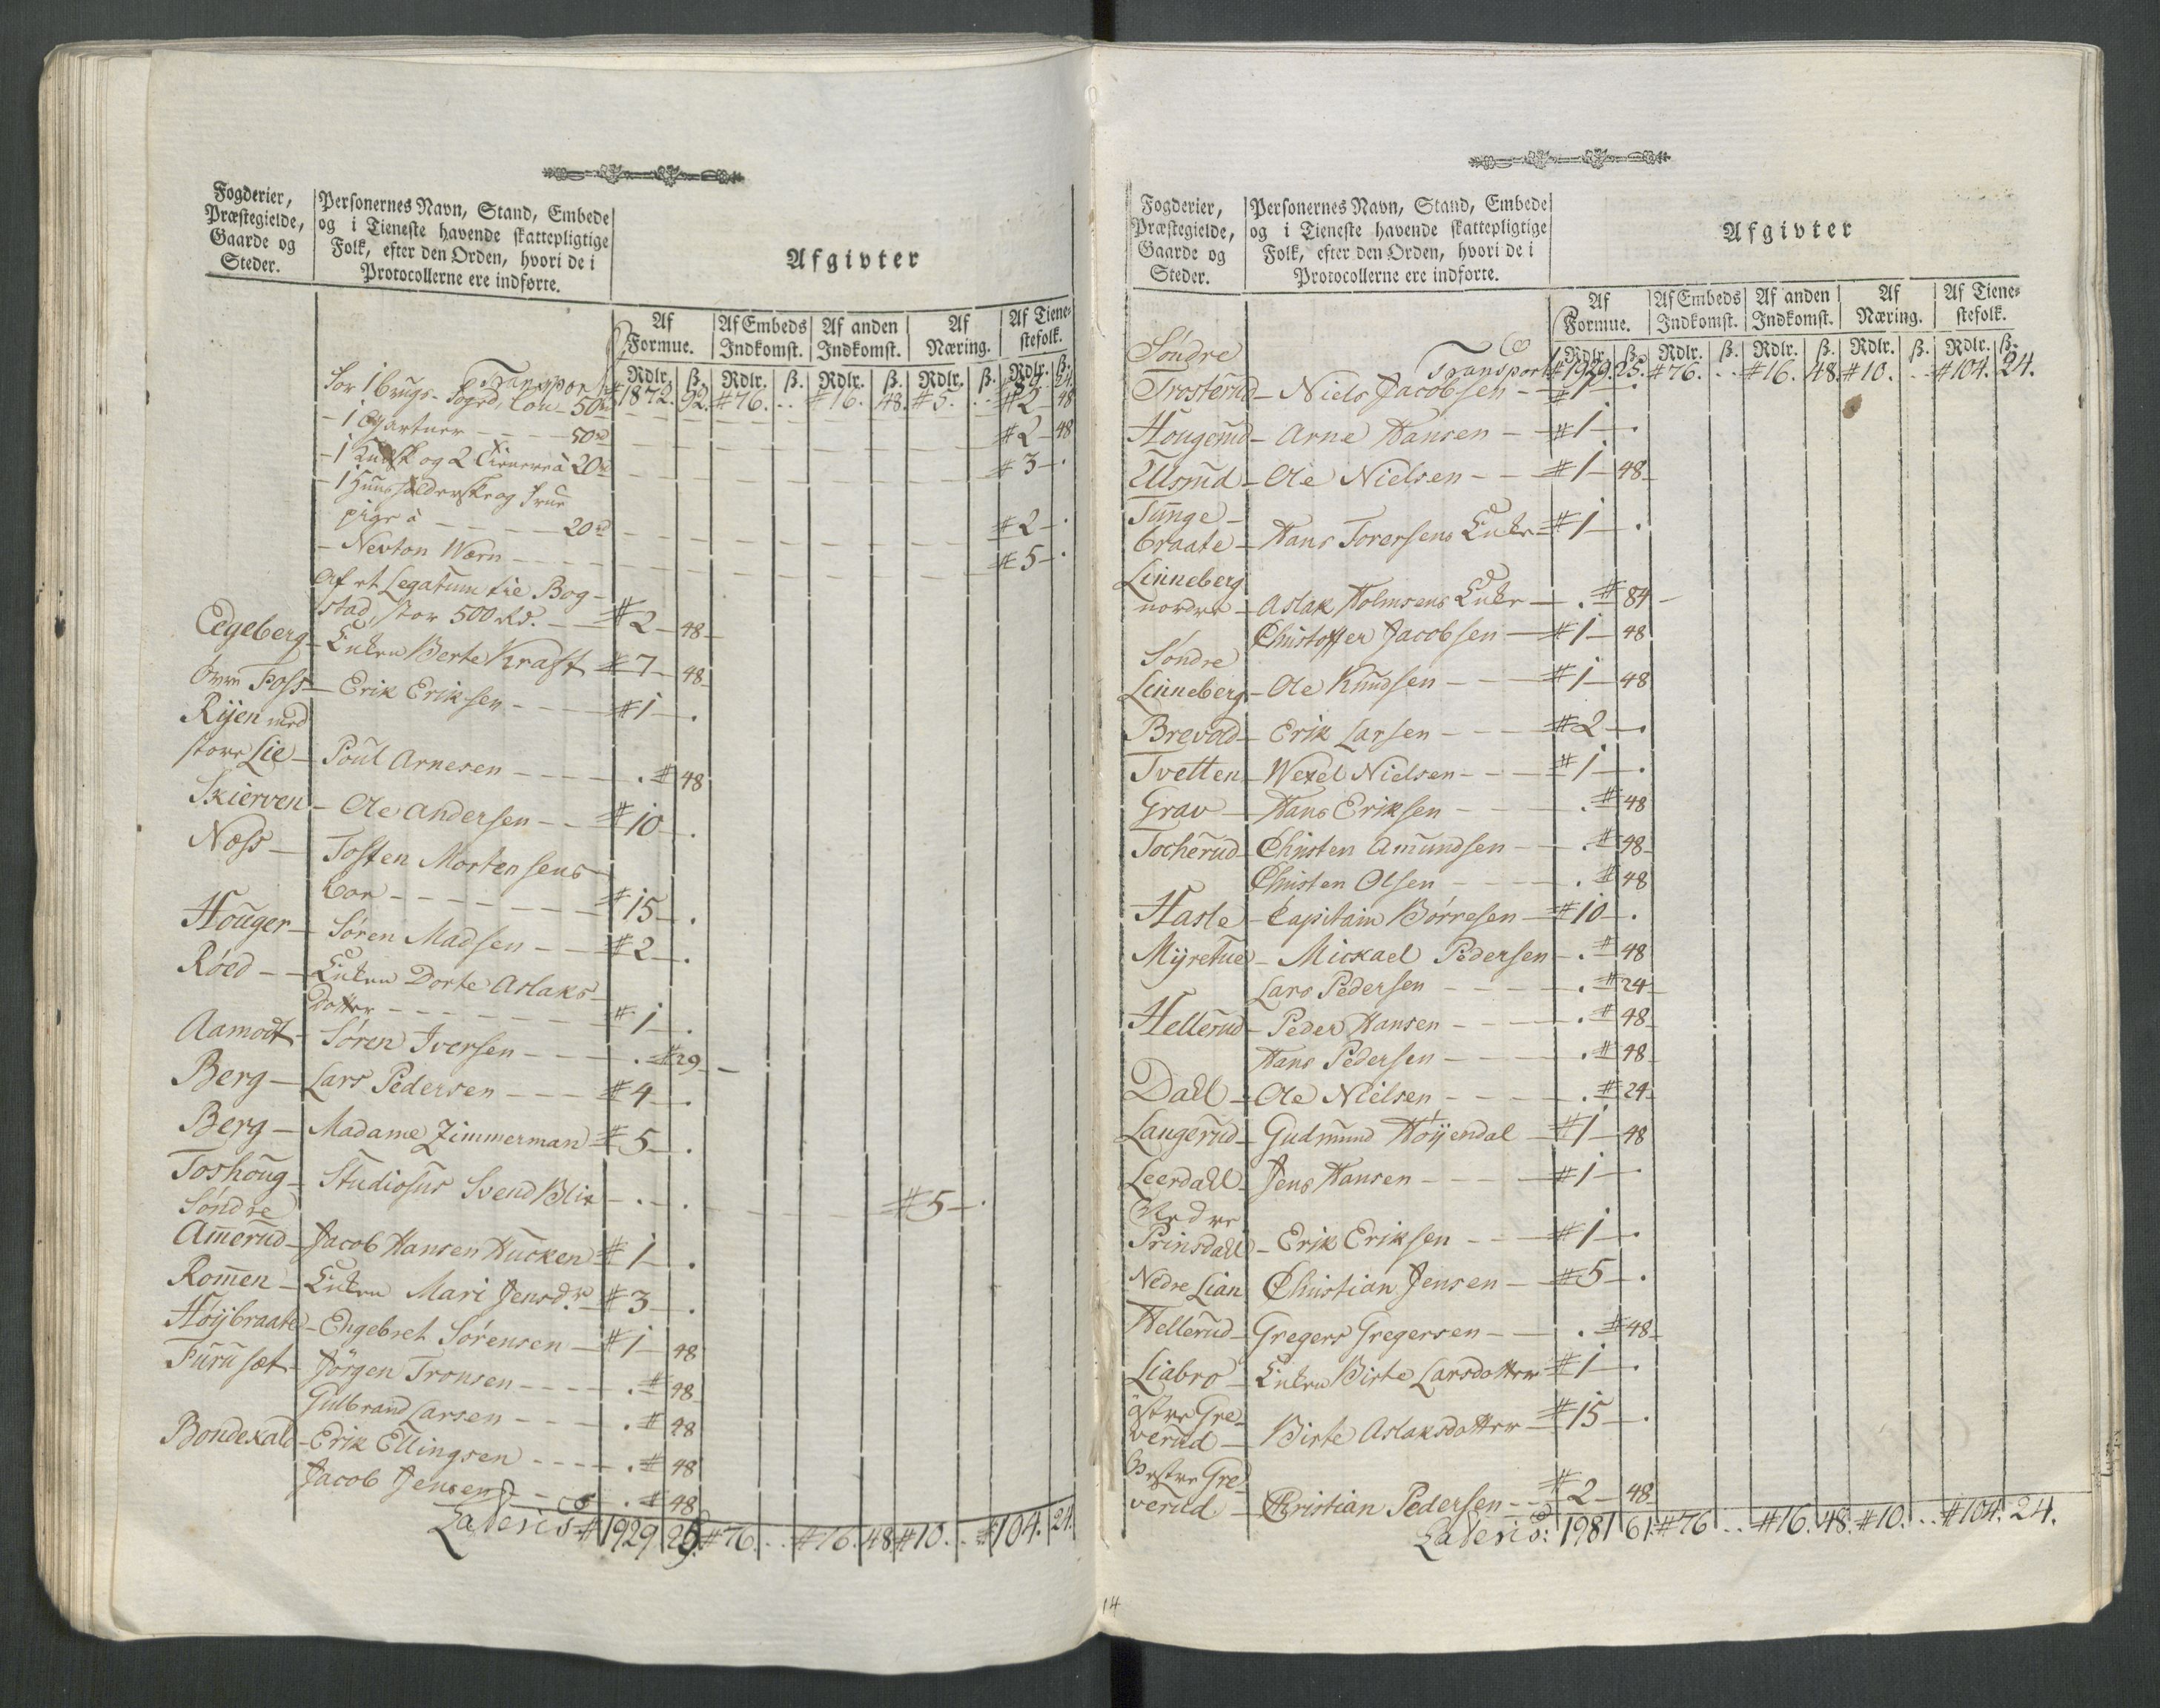 Fogderier,
Præstegielde,
Gaarde og
Steder.
Personernes Navn, Stand, Embede
og i Tieneste havende skattepligtige
Folk, efter den Orden, hvori de i
Protocollerne ere indførte.
Afgivter
Af Formue. Af Embeds Indkomst. Af anden Indkomst. Af Næring. Af Tienestefolk.
Rdlr. ß. Rdlr. ß. Rdlr. ß. Rdlr. ß. Rdlr. ß.
Transport # 1872. 92. # 76. .. # 16. 48. # 5. ..
for 1 brugs-foged, Løn 50rd # 2 48
- 1 Gartner - - - 50rd # 2 - 48
- 1 Kudsk og 2 Tienere à 20rd # 3 - .
- 1 Huusholderske og Frue
pige à - - - 20rd # 2 - .
- Nevton Wærn - - - # 5 - .
Af et Legatum til Bog-
stad, stor 500 Rd. - # 2 - 48
Eegeberg - Enken Berte Kraft # 7 - 48
övre Foss - Erik Eriksen - - - # 1 - .
Rÿen med
store Lie - Poul Arnesen - - - . # 48
Skierven - Ole Andersen - - # 10 - .
Næss - Tosten Mortensens
boe - - - # 15 - .
Houger - Sören Madsen - - # 2 - .
Röed - - Enken Dorte Aslaks-
Dotter - - - # 1 - .
Aamodt - Sören Iversen - - - . # 29 -
Berg - Lars Pedersen - - - # 4 - .
Berg - Madame Zimmerman # 5 - .
Toshoug - Studiosus Svend Blix - . - . # 5 - .
Söndre
Amerud - Jacob Hansen Hucken # 1 - .
Romen - Enken Mari Jensdr. # 3 - .
Höÿbraate - Engebret Sörensen - # 1 - 48
Furusæt - Jörgen Tronsen - - - . # 48
Gulbrand Larsen - - - . # 48
Bondekald - Erik Ellingsen - - - . # 48
Jacob Jensen - . # 48
Lateris # 1929 25. # 76. .. # 16. 48 # 10. .. # 104. 24.
Fogderier,
Præstegielde,
Gaarde og
Steder.
Personernes Navn, Stand, Embede
og i Tieneste havende skattepligtige
Folk, efter den Orden, hvori de i
Protocollerne ere indførte.
Afgivter
Af Formue. Af Embeds Indkomst. Af anden Indkomst. Af Næring. Af Tienestefolk.
Rdlr. ß. Rdlr. ß. Rdlr. ß. Rdlr. ß. Rdlr. ß.
Transport # 1929. 25. # 76. .. # 16. 48. # 10. .. # 104. 24.
Söndre
Trosterud - Niels Jacobsen - # 1 - .
Hougerud - Arne Hansen - - # 1 - .
Ulsrud - Ole Nielsen - - # 1 - 48
Tunge-
braate - Hans Torersens Enke # 1 - .
Linneberg
nordre - Aslak Holmsens Enke - . # 84 -
Christoffer Jacobsen - # 1 - 48
Söndre
Linneberg - Ole Knudsen - - # 1 - 48
Brevold - Erik Larsen - - - # 2 - .
Tvetten - Wexel Nielsen - - # 1 - .
Grav - Hans Eriksen - . # 48
Tocherud - Christen Amundsen - - . # 48
Christen Olsen - - - . # 48
Hasle - Capitain Börresen - # 10 - .
Mÿretue - Mickael Pedersen - . # 48
Lars Pedersen - - - . # 24 -
Hellerud - Peder Hansen - - - . # 48
Hans Pedersen - - - . # 48
Dall - Ole Nielsen - - - . # 24
Langerud - Gudmund Höÿendal - # 1 - 48
Leerdall - Jens Hansen - - - # 1 - .
Nedre
Prinsdall - Erik Eriksen - - # 1 - .
Nedre Lian Christian Jensen - # 5 - .
Hellerud - Gregers Gregersen - - . # 48
Liabro - Enken Birte Larsdotter # 1 - .
östre Gre-
verud - Birte Aslaksdotter - # 15 - .
Vestre Gre-
verud - Christian Pedersen - - # 2 - 48
Lateris: 1981 61. # 76 .. # 16. 48. # 10. .. # 104. 24.
14